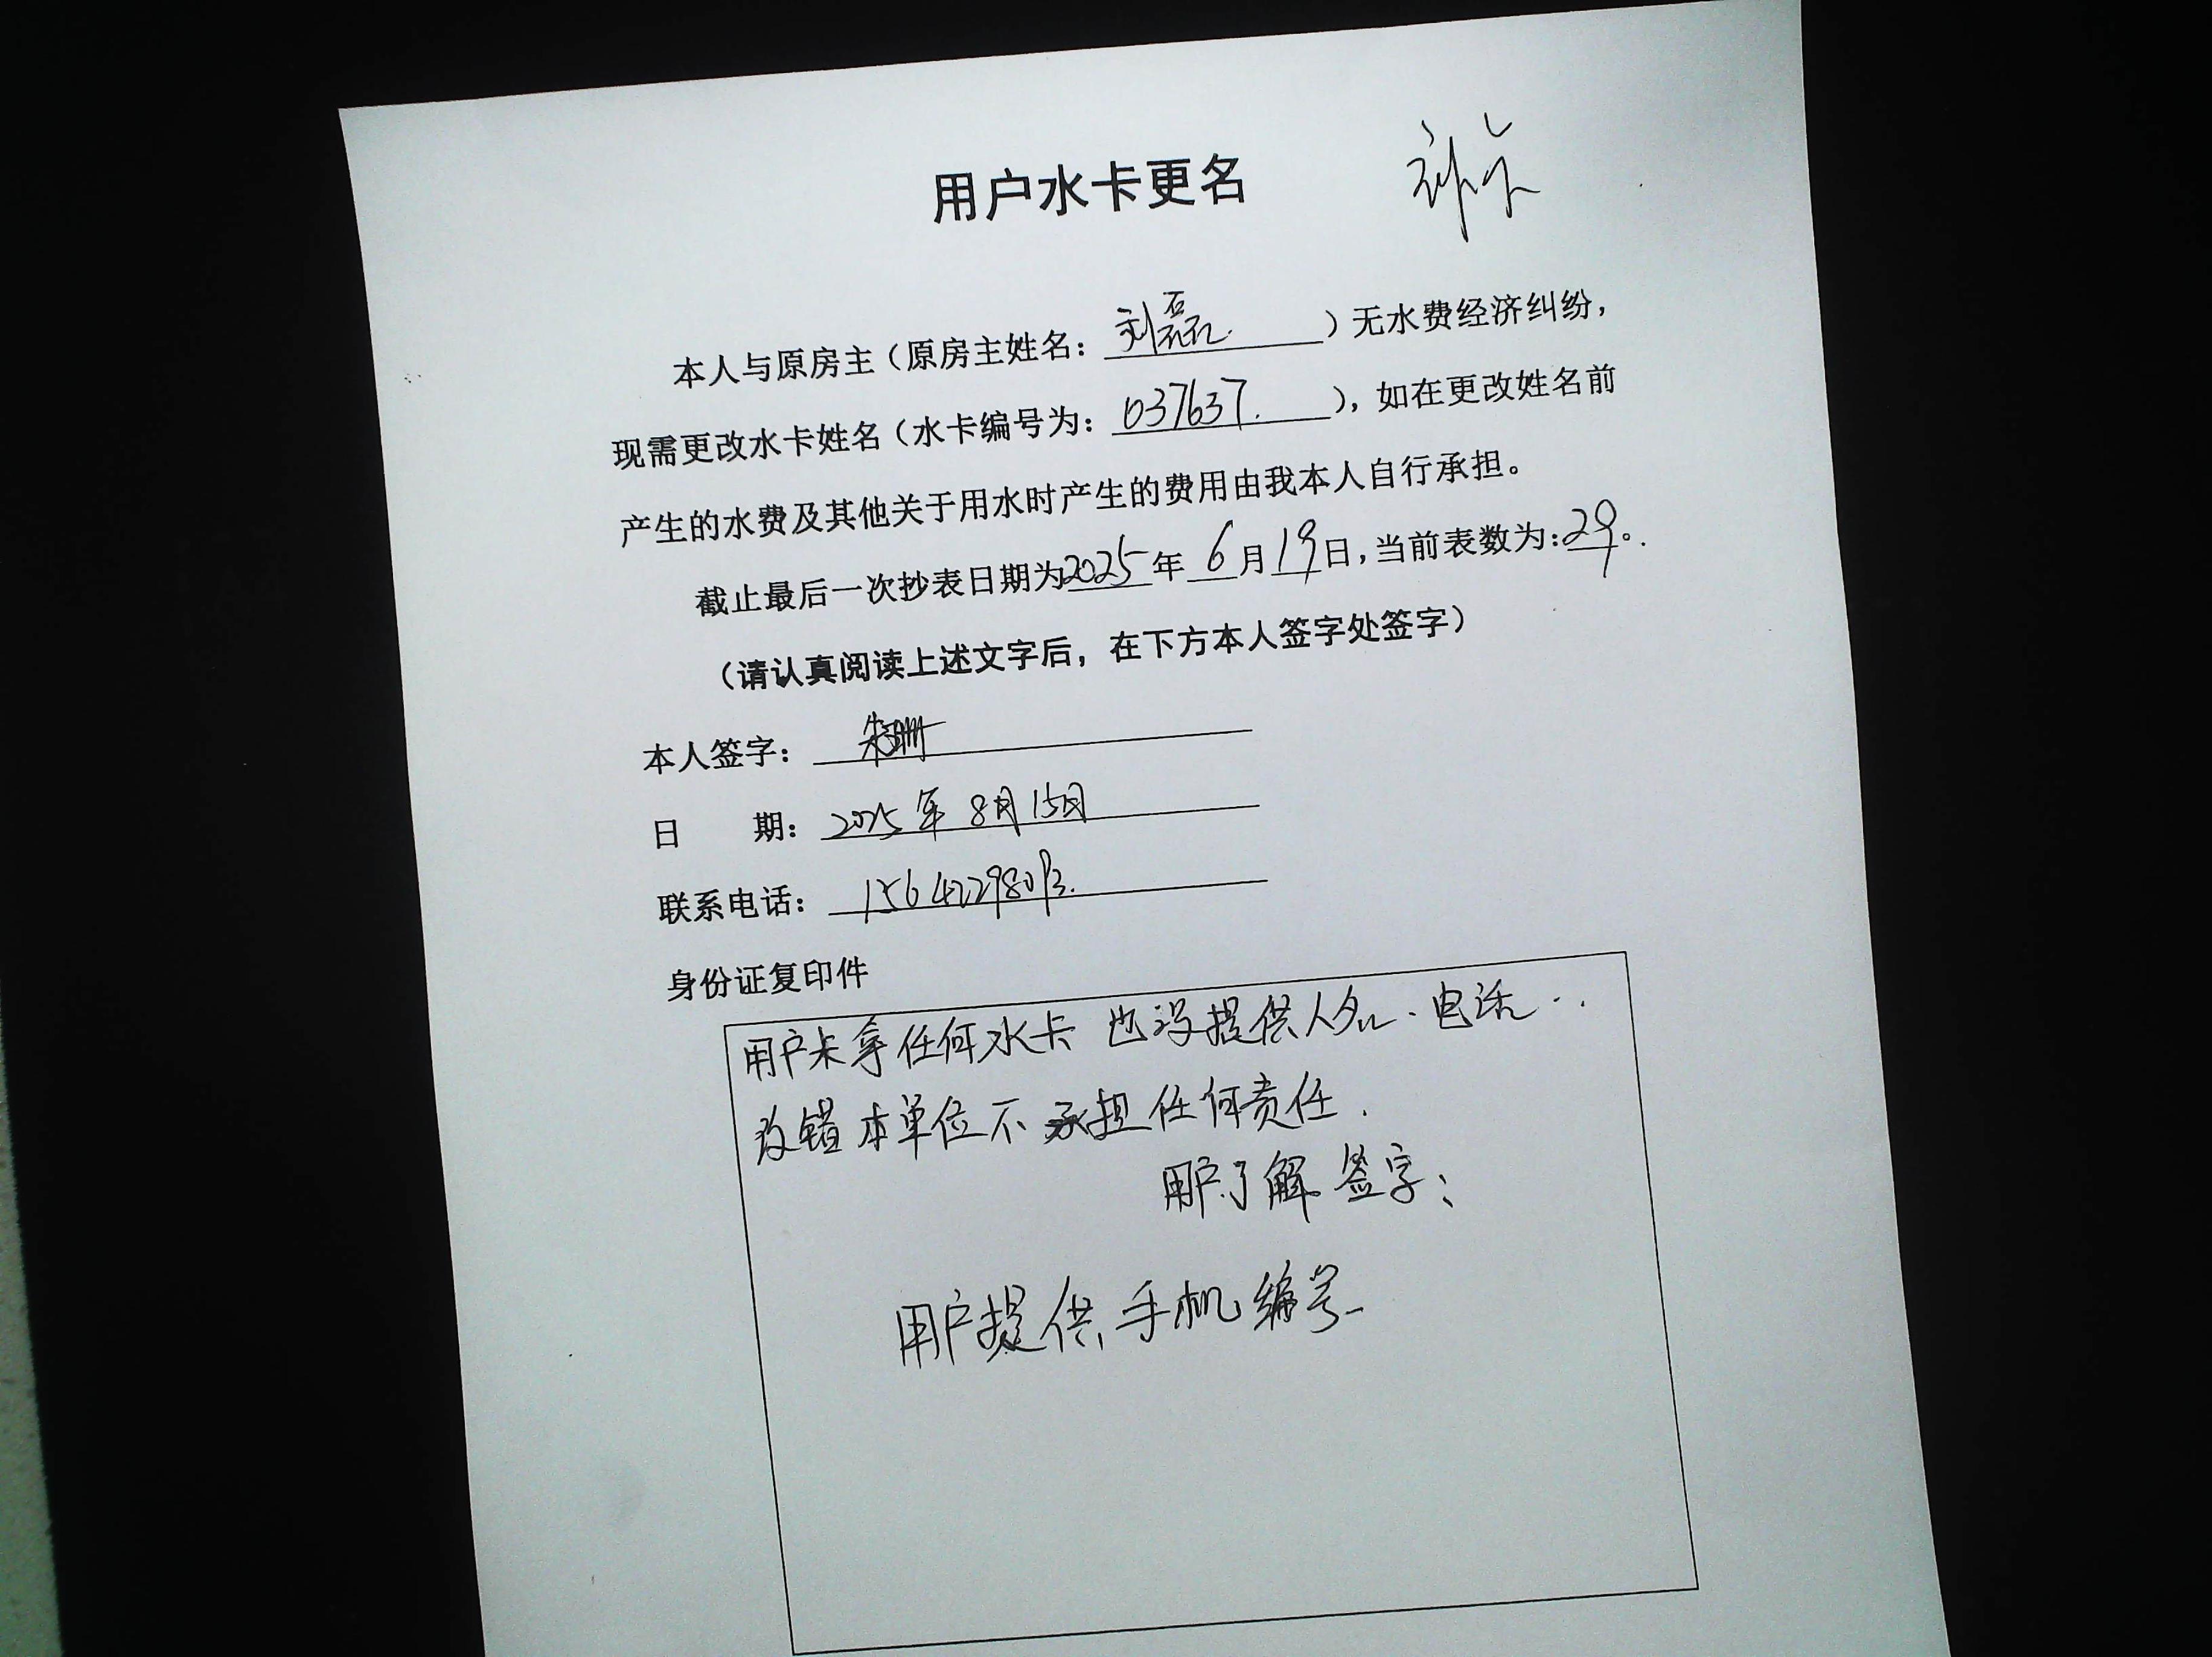 用户水卡更名
本人与原房主（原房主姓名：刘磊）无水费经济纠纷，
现需更改水卡姓名（水卡编号为：037637.），如在更改姓名前
产生的水费及其他关于用水时产生的费用由我本人自行承担。
截止最后一次抄表日期为2025年6月19日，当前表数为：29。
（请认真阅读上述文字后，在下方本人签字处签字）
本人签字：朱珊
日 期：2025年8月15日
联系电话：156422980
身份证复印件
用户未拿任何水卡 也没提供人名、电话…
改错本单位不承担任何责任.
用户了解 签字：
用户提供手机编号